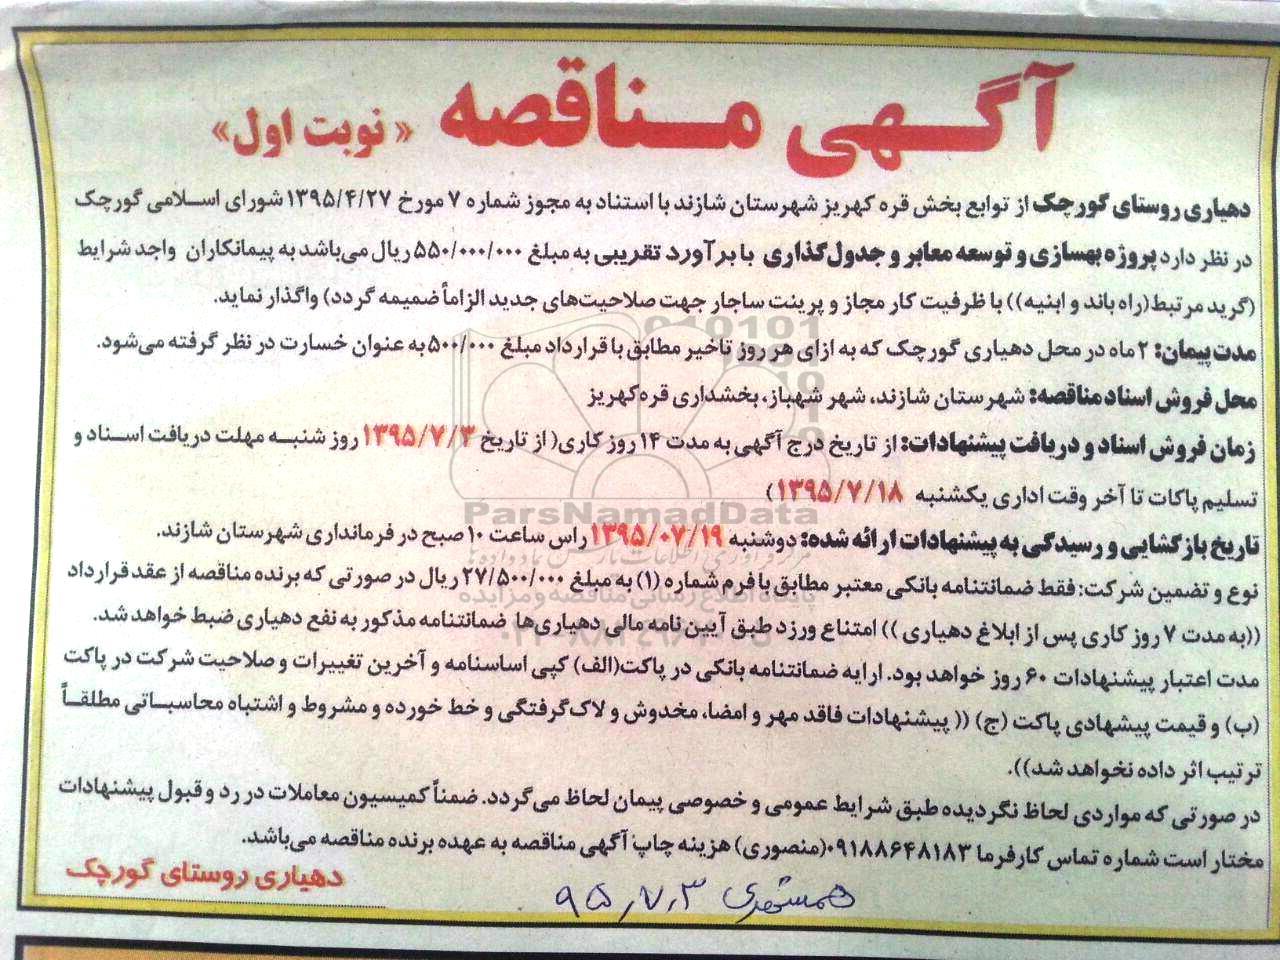 آگهی مناقصه « نوبت اول»
دهیاری روستای گورچک از توابع بخش قره کهریز شهرستان شازند با استناد به مجوز شماره ۷ مورخ ۱۳۹۵/۴/۲۷ شورای اسلامی گورچک
در نظر دارد پروژه بهسازی و توسعه معابر و جدول گذاری با برآورد تقریبی به مبلغ ۵۵۰/۰۰۰/۰۰۰ ریال می‌باشد به پیمانکاران واجد شرایط
(گرید مرتبط(راه باند و ابنیه)) با ظرفیت کار مجاز و پرینت ساجار جهت صلاحیت‌های جدید الزاماً ضمیمه گردد) واگذار نماید.
مدت پیمان: ۲ ماه در محل دهیاری گورچک که به ازای هر روز تاخیر مطابق با قرارداد مبلغ ۵۰۰/۰۰۰ به عنوان خسارت در نظر گرفته می‌شود.
محل فروش اسناد مناقصه: شهرستان شازند، شهر شهباز، بخشداری قره‌کهریز
زمان فروش اسناد و دریافت پیشنهادات: از تاریخ درج آگهی به مدت ۱۴ روز کاری( از تاریخ ۱۳۹۵/۷/۳ روز شنبه مهلت دریافت اسناد و
تسلیم پاکات تا آخر وقت اداری یکشنبه ۱۳۹۵/۷/۱۸)
ParsNamadData
تاریخ بازگشایی و رسیدگی به پیشنهادات ارائه شده: دوشنبه ۱۳۹۵/۰۷/۱۹ راس ساعت ۱۰ صبح در فرمانداری شهرستان شازند.
نوع و تضمین شرکت: فقط ضمانتنامه بانکی معتبر مطابق با فرم شماره (۱) به مبلغ ۲۷/۵۰۰/۰۰۰ ریال در صورتی که برنده مناقصه از عقد قرارداد
((به مدت ۷ روز کاری پس از ابلاغ دهیاری )) امتناع ورزد طبق آیین نامه مالی دهیاری‌ها ضمانتنامه مذکور به نفع دهیاری ضبط خواهد شد.
مدت اعتبار پیشنهادات ۶۰ روز خواهد بود. ارایه ضمانتنامه بانکی در پاکت(الف) کپی اساسنامه و آخرین تغییرات و صلاحیت شرکت در پاکت
(ب) و قیمت پیشهادی پاکت (ج) (( پیشنهادات فاقد مهر و امضا، مخدوش و لاک گرفتگی و خط خورده و مشروط و اشتباه محاسباتی مطلقاً
ترتیب اثر داده نخواهد شد)).
در صورتی که مواردی لحاظ نگردیده طبق شرایط عمومی و خصوصی پیمان لحاظ می‌گردد. ضمناً کمیسیون معاملات در رد و قبول پیشنهادات
مختار است شماره تماس کارفرما ۰۹۱۸۸۶۴۸۱۸۳(منصوری) هزینه چاپ آگهی مناقصه به عهده برنده مناقصه می‌باشد.
دهیاری روستای گورچک
همشهری ۹۵,۷,۳